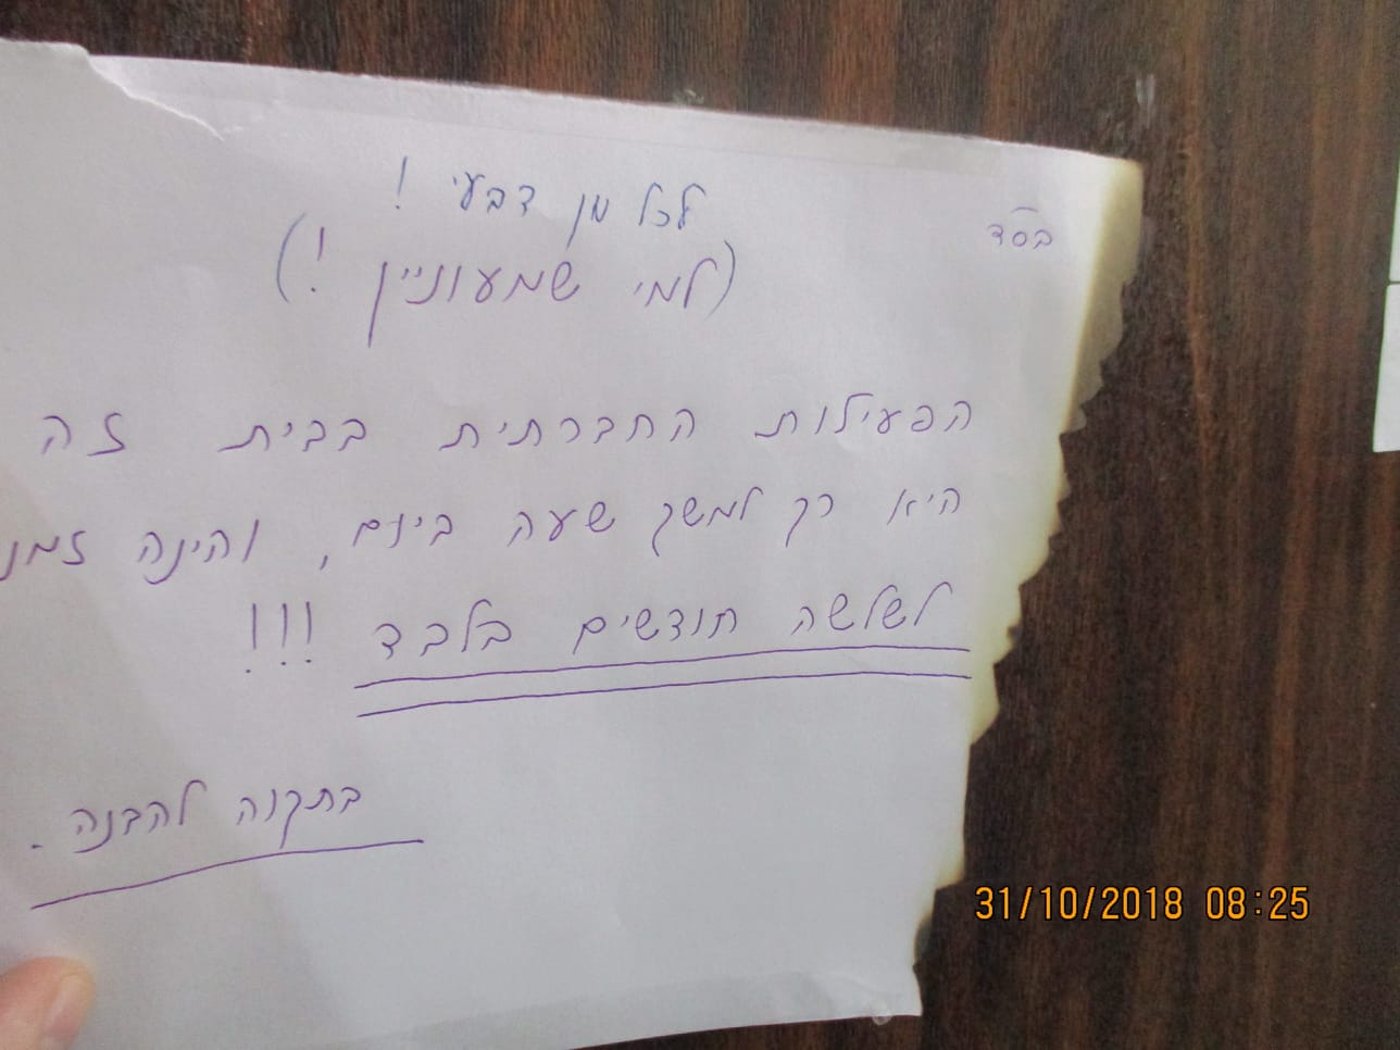 בסד
לכל מן דבעי !
(למי שמעוניין !)
הפעילות החברתית בבית זה
היא רק למשך שעה ביום, והינה זמנ
לשלשה חודשים בלבד !!!
בתקוה להבנה.
31/10/2018 08:25